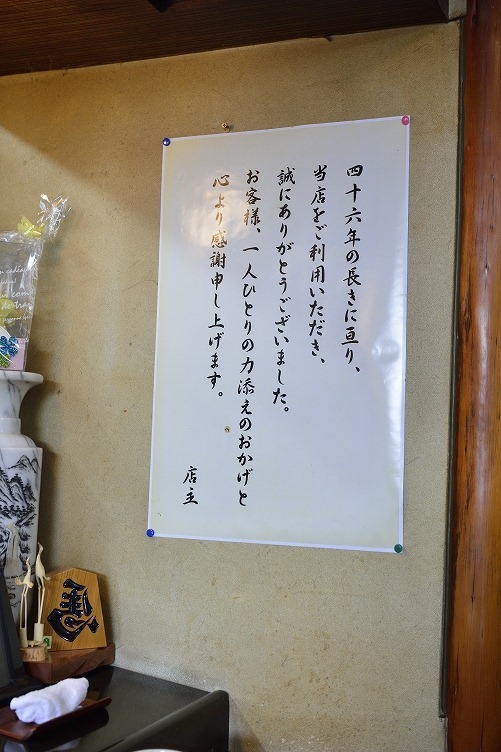 四十六年の長きに亘り、
当店をご利用いただき、
誠にありがとうございました。
お客様、一人ひとりの力添えのおかげと
心より感謝申し上げます。
店主